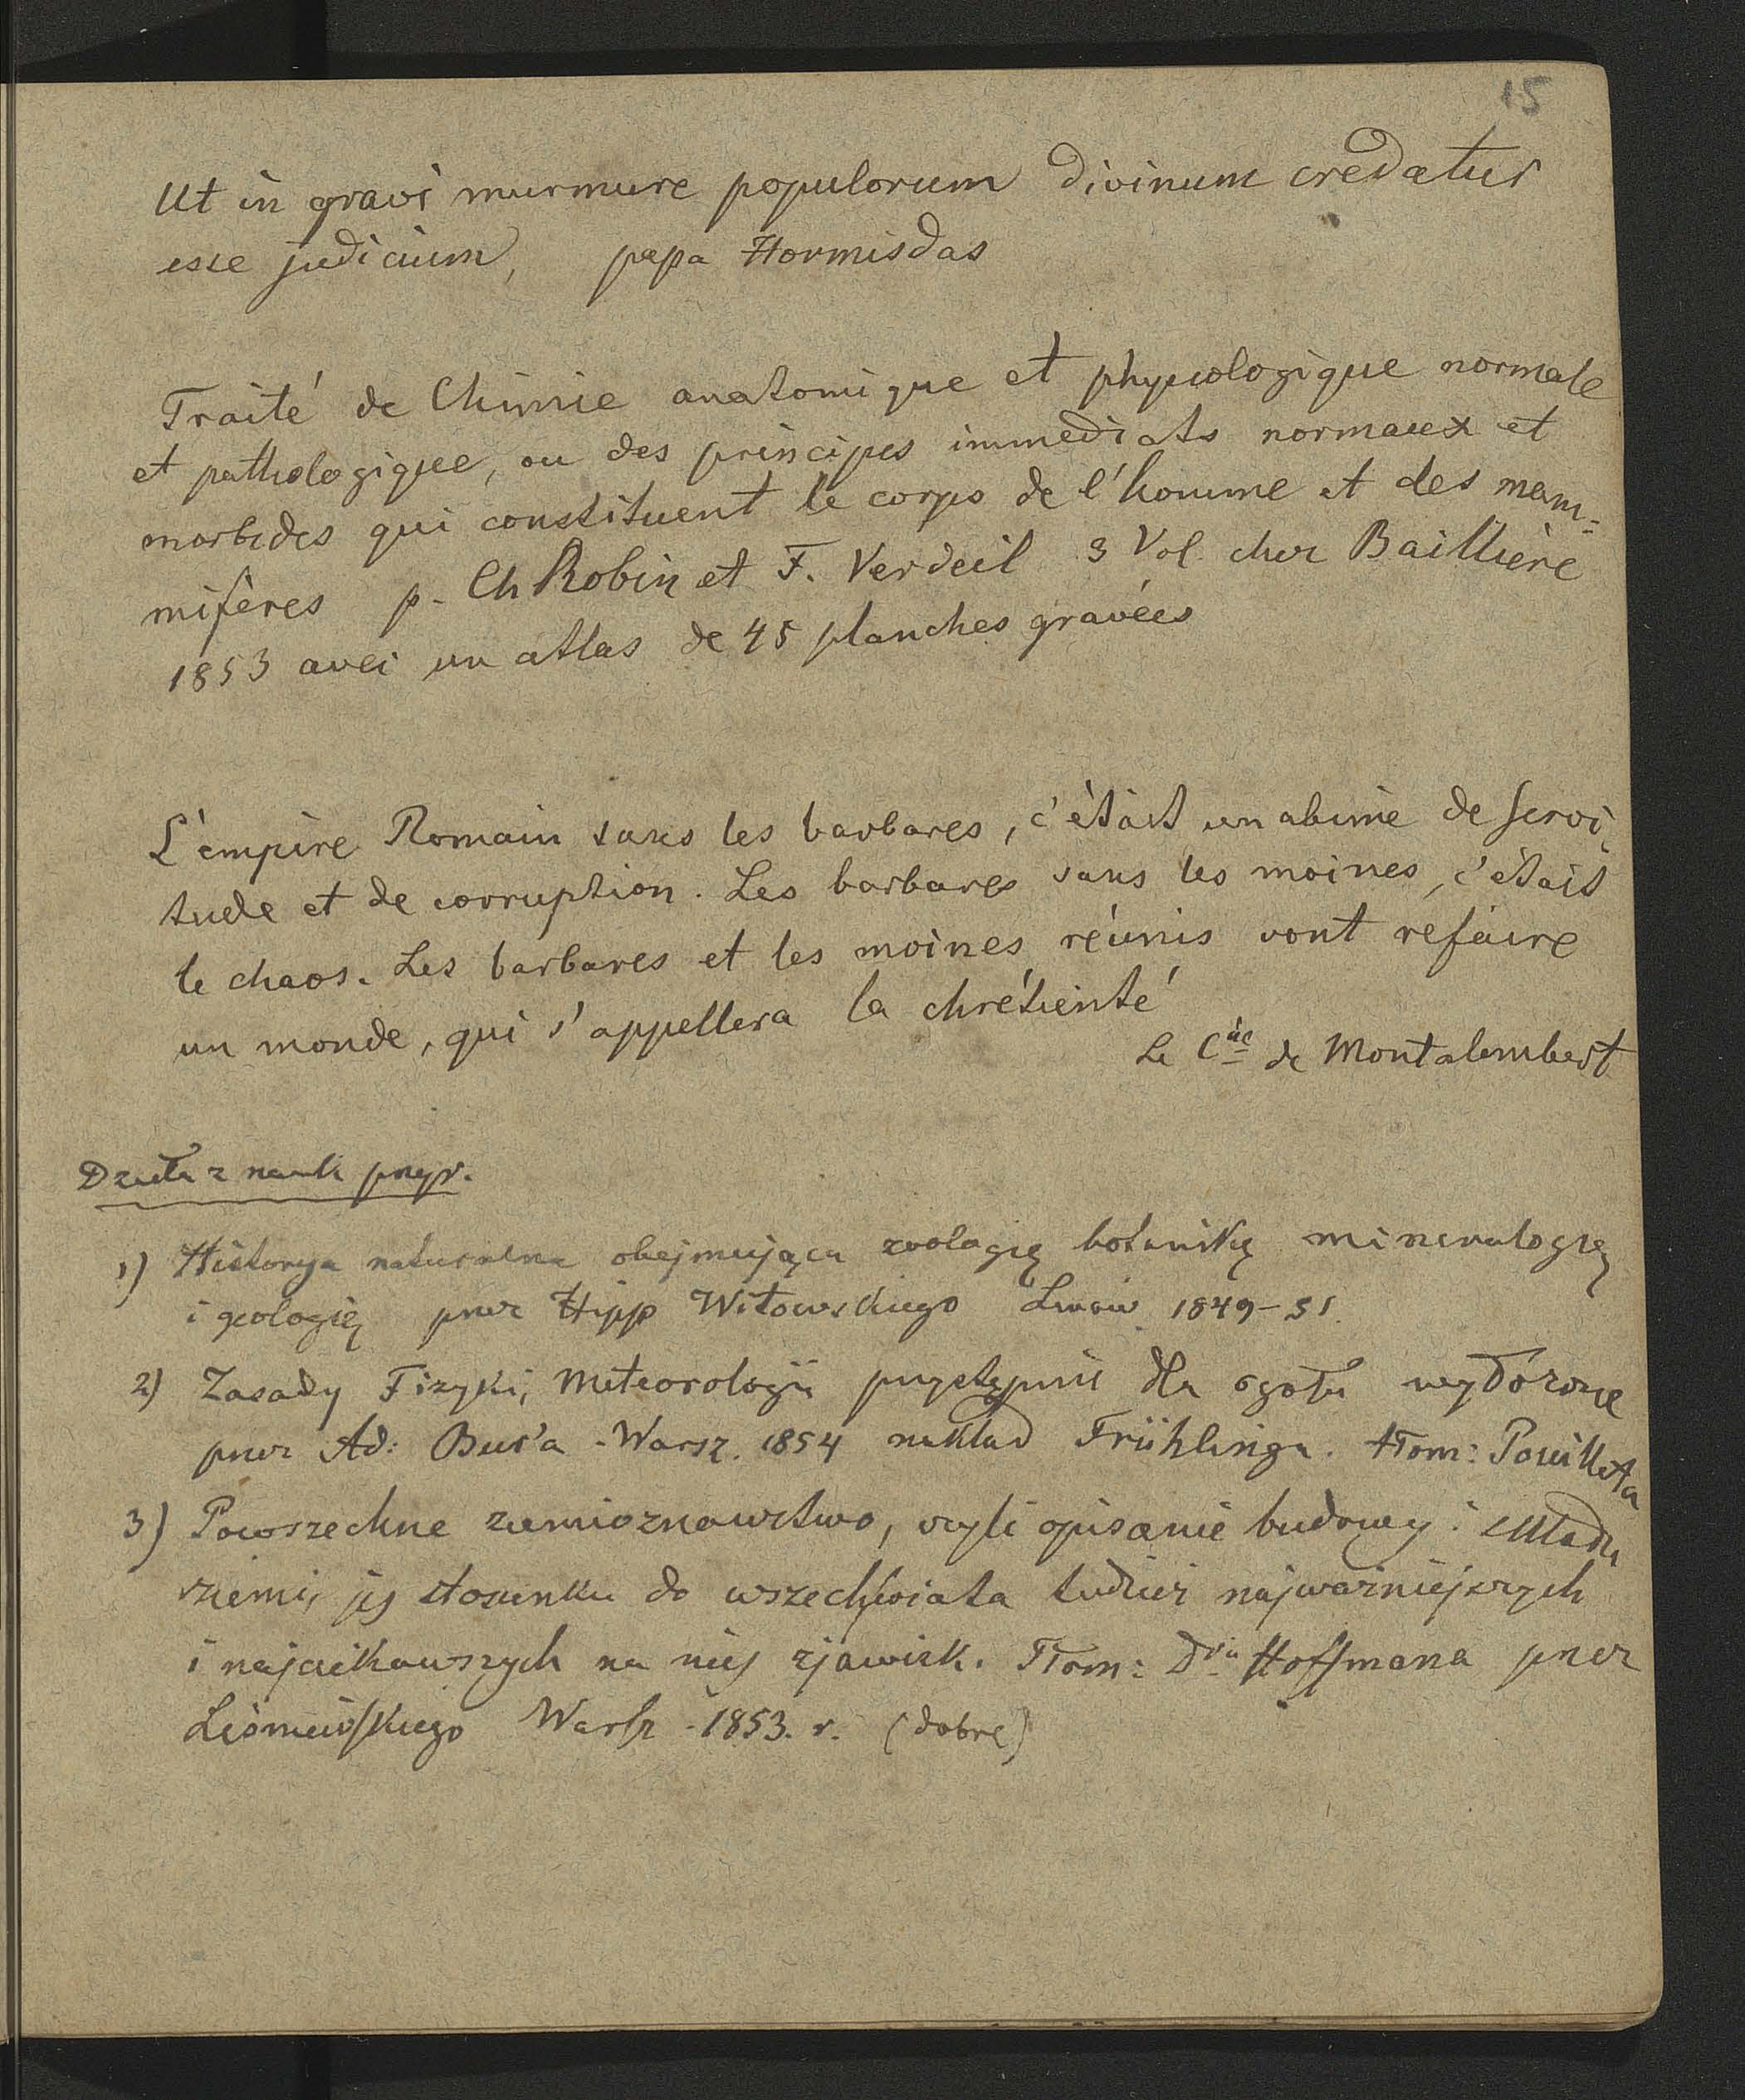 15
Ut in gravi murmure populorum divinum credatur
esse judicium, papa Hormisdas
Traité de Chimie anatomique et physiologique normale
et pathologique, ou des principes immediats normaux et
morbides qui constituent le corps de l'homme et des mam=
mifères p. Ch Robin et F. Verdeil 3 Vol. chez Baillière
1853 avec un atlas de 45 planches gravées
L'empire Romain sans les barbares, c'était un abime de servi
tude et de corruption. Les barbares sans les moines, c'était
le chaos. Les barbares et les moines réunis vont refaire
un monde, qui s'appellera la chrétienté
Le Cte de Montalembert
Dzieła z nauk przyr.
1) Historya naturalna obejmująca zoologię botanikę mineralogię
i geologię przez Hipp Witowskiego Lwów 1849-51.
2) Zasady Fizyki, Meteorologii przystępnie dla ogółu wyłożone
przez Ad: Bus'a - Warsz. 1854 nakład Frühlinga. tłom: Pouilleta
3) Powszechne ziemioznawstwo, czyli opisanie budowy i składu
ziemi, jej stosunku do wszechświata tudzież najważniejszych
i najciekawszych na niej zjawisk. Tłom: Dra Hoffmana przez
Warsz - 1853. r. (dobre)